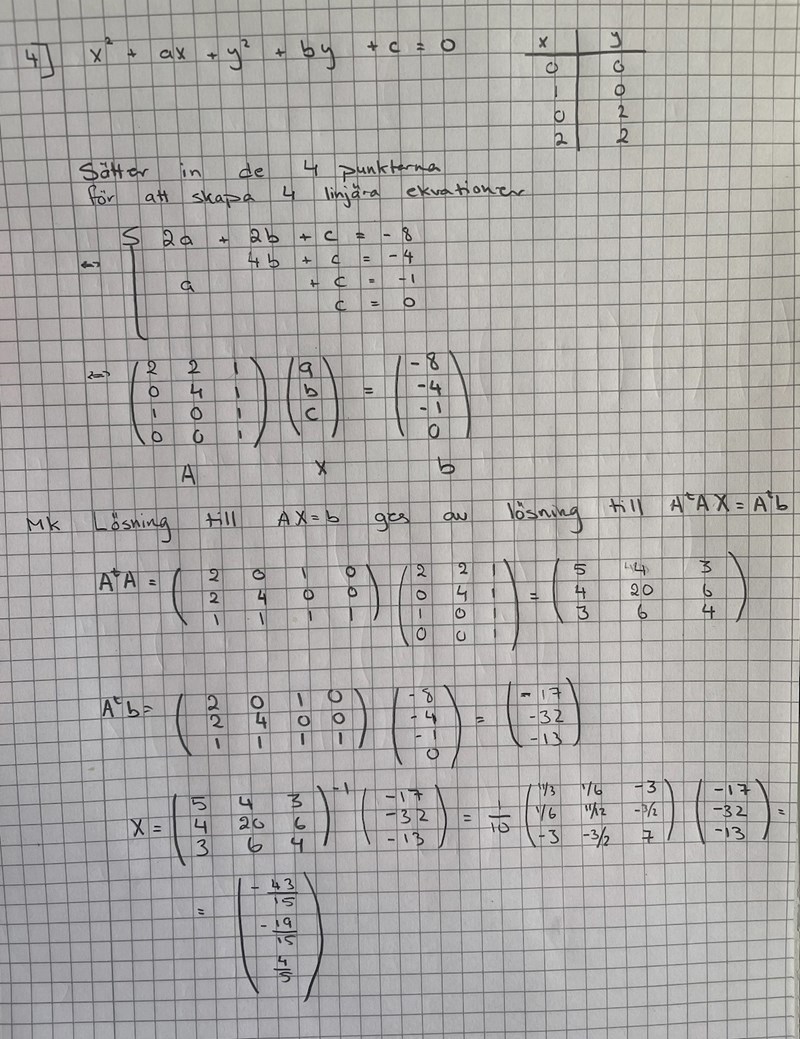 4] x² + ax + y² + by + c = 0
x | y
0 | 0
1 | 0
0 | 2
2 | 2
Sätter in de 4 punkterna
för att skapa 4 linjära ekvationer
⟺ { 2a + 2b + c = -8
4b + c = -4
a + c = -1
c = 0
⟺ (2 2 1; 0 4 1; 1 0 1; 0 0 1) (a; b; c) = (-8; -4; -1; 0)
A x b
MK Lösning till AX=b ges av lösning till AᵗAX=Aᵗb
AᵗA = (2 0 1 0; 2 4 0 0; 1 1 1 1) (2 2 1; 0 4 1; 1 0 1; 0 0 1) = (5 4 3; 4 20 6; 3 6 4)
Aᵗb = (2 0 1 0; 2 4 0 0; 1 1 1 1) (-8; -4; -1; 0) = (-17; -32; -13)
X = (5 4 3; 4 20 6; 3 6 4)⁻¹ (-17; -32; -13) = 1/10 (11/3 1/6 -3; 1/6 11/12 -3/2; -3 -3/2 7) (-17; -32; -13) =
= (-43/15; -19/15; 4/5)